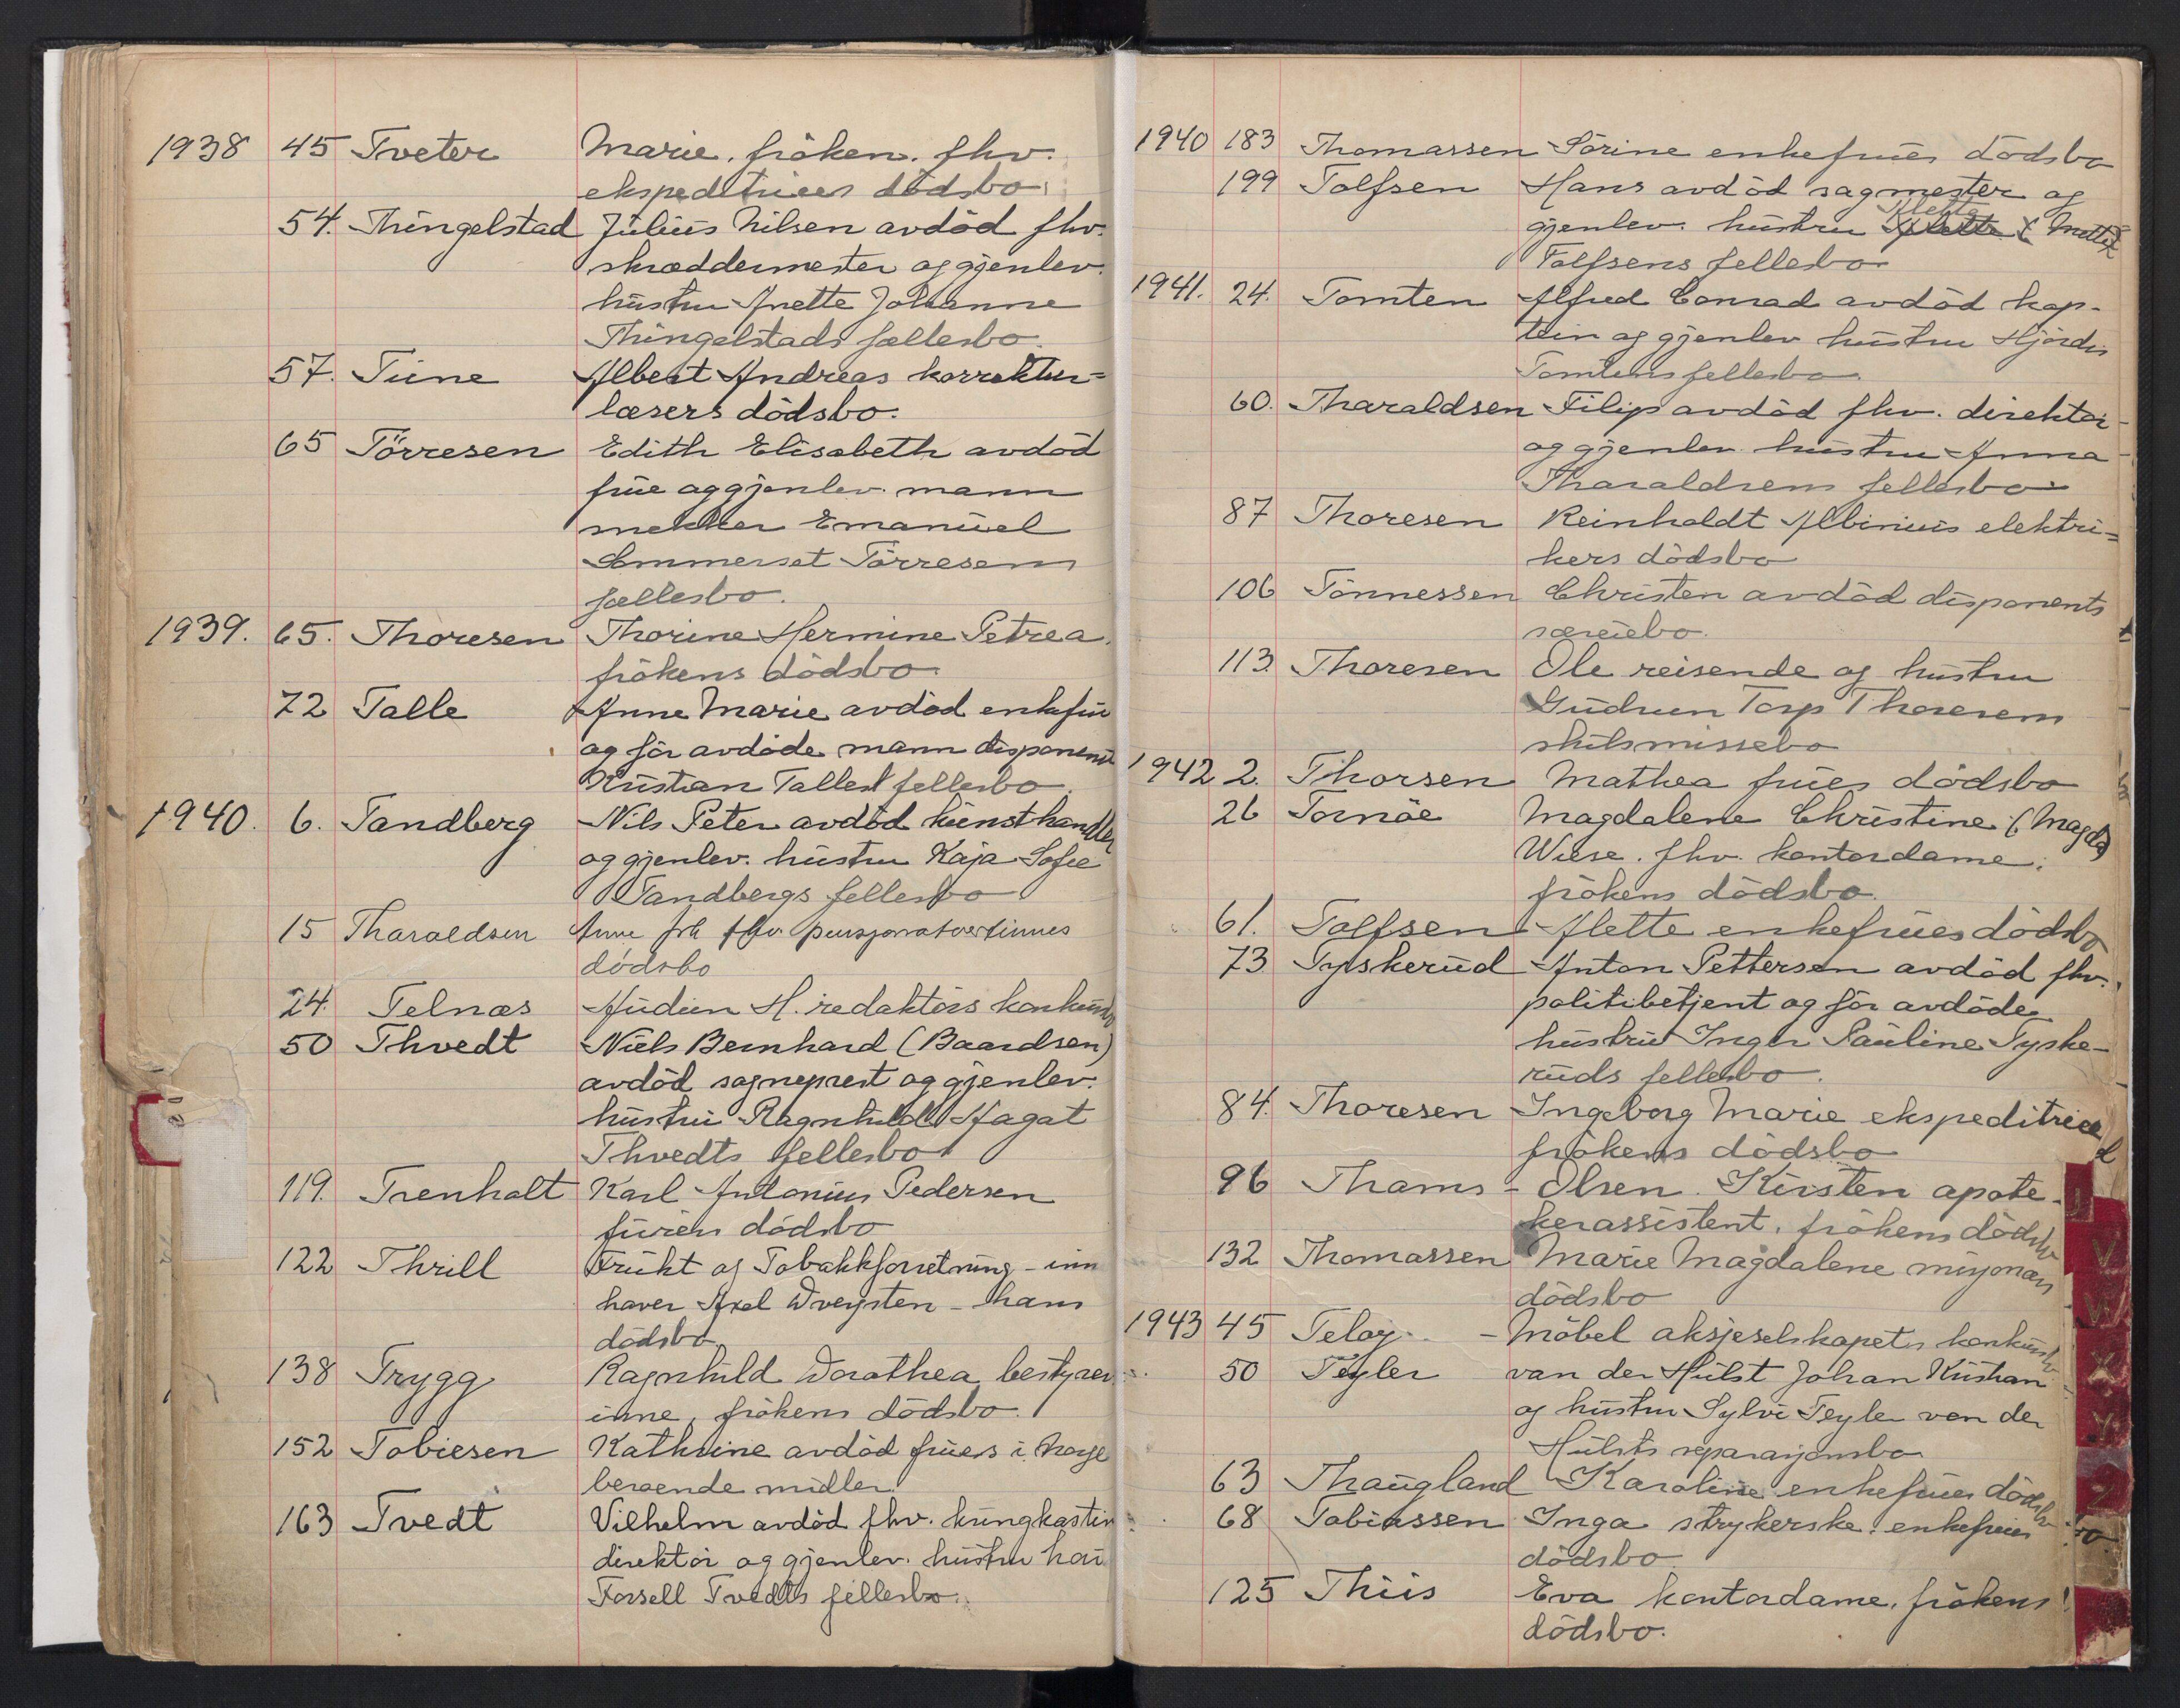 1938 45 Tveter Marie, fröken, fhv.
ekspeditrices dödsbo
54. Thingelstad Julius Nilsen avdöd fhv.
skræddermester og gjenlev.
hustru Anette Johanne
Thingelstads fællesbo.
57. Tune Albert Andreas korrektur=
læsers dödsbo.
65 Törresen Edith Elisabeth avdöd
frue og gjenlev. mann
mekler Emanuel
Sommerset Törresens
fællesbo.
1939. 65. Thoresen Thorine Hermine Petrea.
frökens dödsbo.
72 Talle Anne Marie avdöd enkefru
og för avdöde mann disponent
Kristian Talles fellesbo.
1940. 6. Tandberg Nils Peter avdöd kunsthandler
og gjenlev. hustru Kaja Sofie
Tandbergs fellesbo
15 Tharaldsen Anne frk fhv pensjonatvertinnes
dödsbo
24. Telnæs Audun H. redaktörs konkursbo
50 Thvedt Niels Bernhard (Baardsen)
avdöd sogneprest og gjenlev.
hustru Ragnhild Aagat
Thvedts fellesbo
119. Trenholt Karl Antonius Pedersen
furers dödsbo
122 Thrill Frukt og Tobakkforretning - inn
haver Axel Dveysten - hans
dödsbo
138 Trygg Ragnhild Dorothea bestyrer
inne, frökens dödsbo.
152 Tobiesen Kathrine avdöd frues i Norge
beroende midler.
163 Tvedt Vilhelm avdöd fhv. kringkastin
direktör og gjenlev. hustru
Forsell Tvedts fellesbo.
1940 183 Thomassen Sörine enkefrues dödsbo
199 Tolfsen Hans avdöd sagmester og
Aletta
gjenlev. hustru Mette
Tolfsens fellesbo
1941. 24. Tomten Alfred Conrad avdöd kap-
tein og gjenlev hustru Hjördis
Tomtens fellesbo
60. Tharaldsen Filip avdöd fhv. direktör
og gjenlev. hustru Anna
Tharaldsens fellesbo
87 Thoresen Reinholdt Albinius elektri=
kers dödsbo
106 Tönnessen Christen avdöd disponents
særeiebo.
113. Thoresen Ole reisende og hustru
Gudrun Torp Thoresens
skilsmissebo
1942 2. Thorsen Mathea frues dödsbo
26 Tornöe Magdalene Christine (Magda)
Wiese. fhv. kontordame.
frökens dödsbo.
61. Tolfsen Alette enkefrues dödsbo
73 Tyskerud Anton Pettersen avdöd fhv.
politibetjent og för avdöde
hustru Inger Pauline Tyske-
ruds fellesbo.
84. Thoresen Ingeborg Marie ekspeditrice
frökens dödsbo
96 Thams - Olsen. Kirsten apote-
kerassistent, frökens dödsbo
132 Thomassen Marie Magdalene misjonærs
dödsbo
1943 45 Teloy - Möbel aksjeselskapets konkursbo
50 Teyler van der Hulst Johan Kristian
og hustru Sylvi Teyler van der
Hulsts separasjonsbo
63 Thaugland Karoline enkefrues dödsbo
68 Tobiassen Inga strykerske. enkefrues
dödsbo
125 Thiis Eva kontordame, frökens
dödsbo.
U
V
W
X
Y
Z